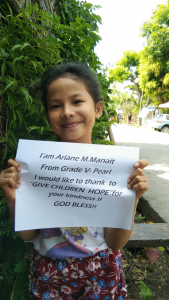 I am Ariane M.Manait
From Grade V- Pearl
I would like to thank to
"GIVE CHILDREN HOPE" for
your kindness !!
GOD BLESS!!